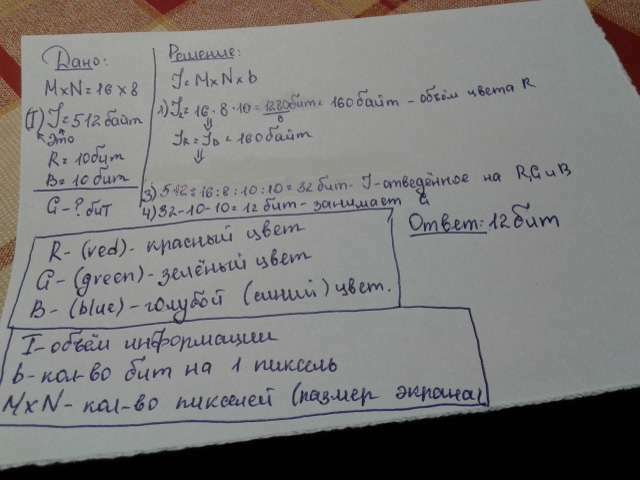 Дано:
MxN = 16 x 8
(I) I = 512 байт
это
R = 10 бит
B = 10 бит
G - ? бит
Решение:
I = M x N x b
= 16 · 8 · 10 = 1280 бит = 160 байт - объём цвета R
8
= 160 байт
3) 512 = 16 : 8 : 10 : 10 = 32 бит - I - отведённое на R, G и B
4) 32 - 10 - 10 = 12 бит - занимает G
Ответ: 12 бит
R - (red) - красный цвет
G - (green) - зелёный цвет
B - (blue) - голубой (синий) цвет.
I - объём информации
b - кол-во бит на 1 пиксель
MxN - кол-во пикселей (размер экрана)